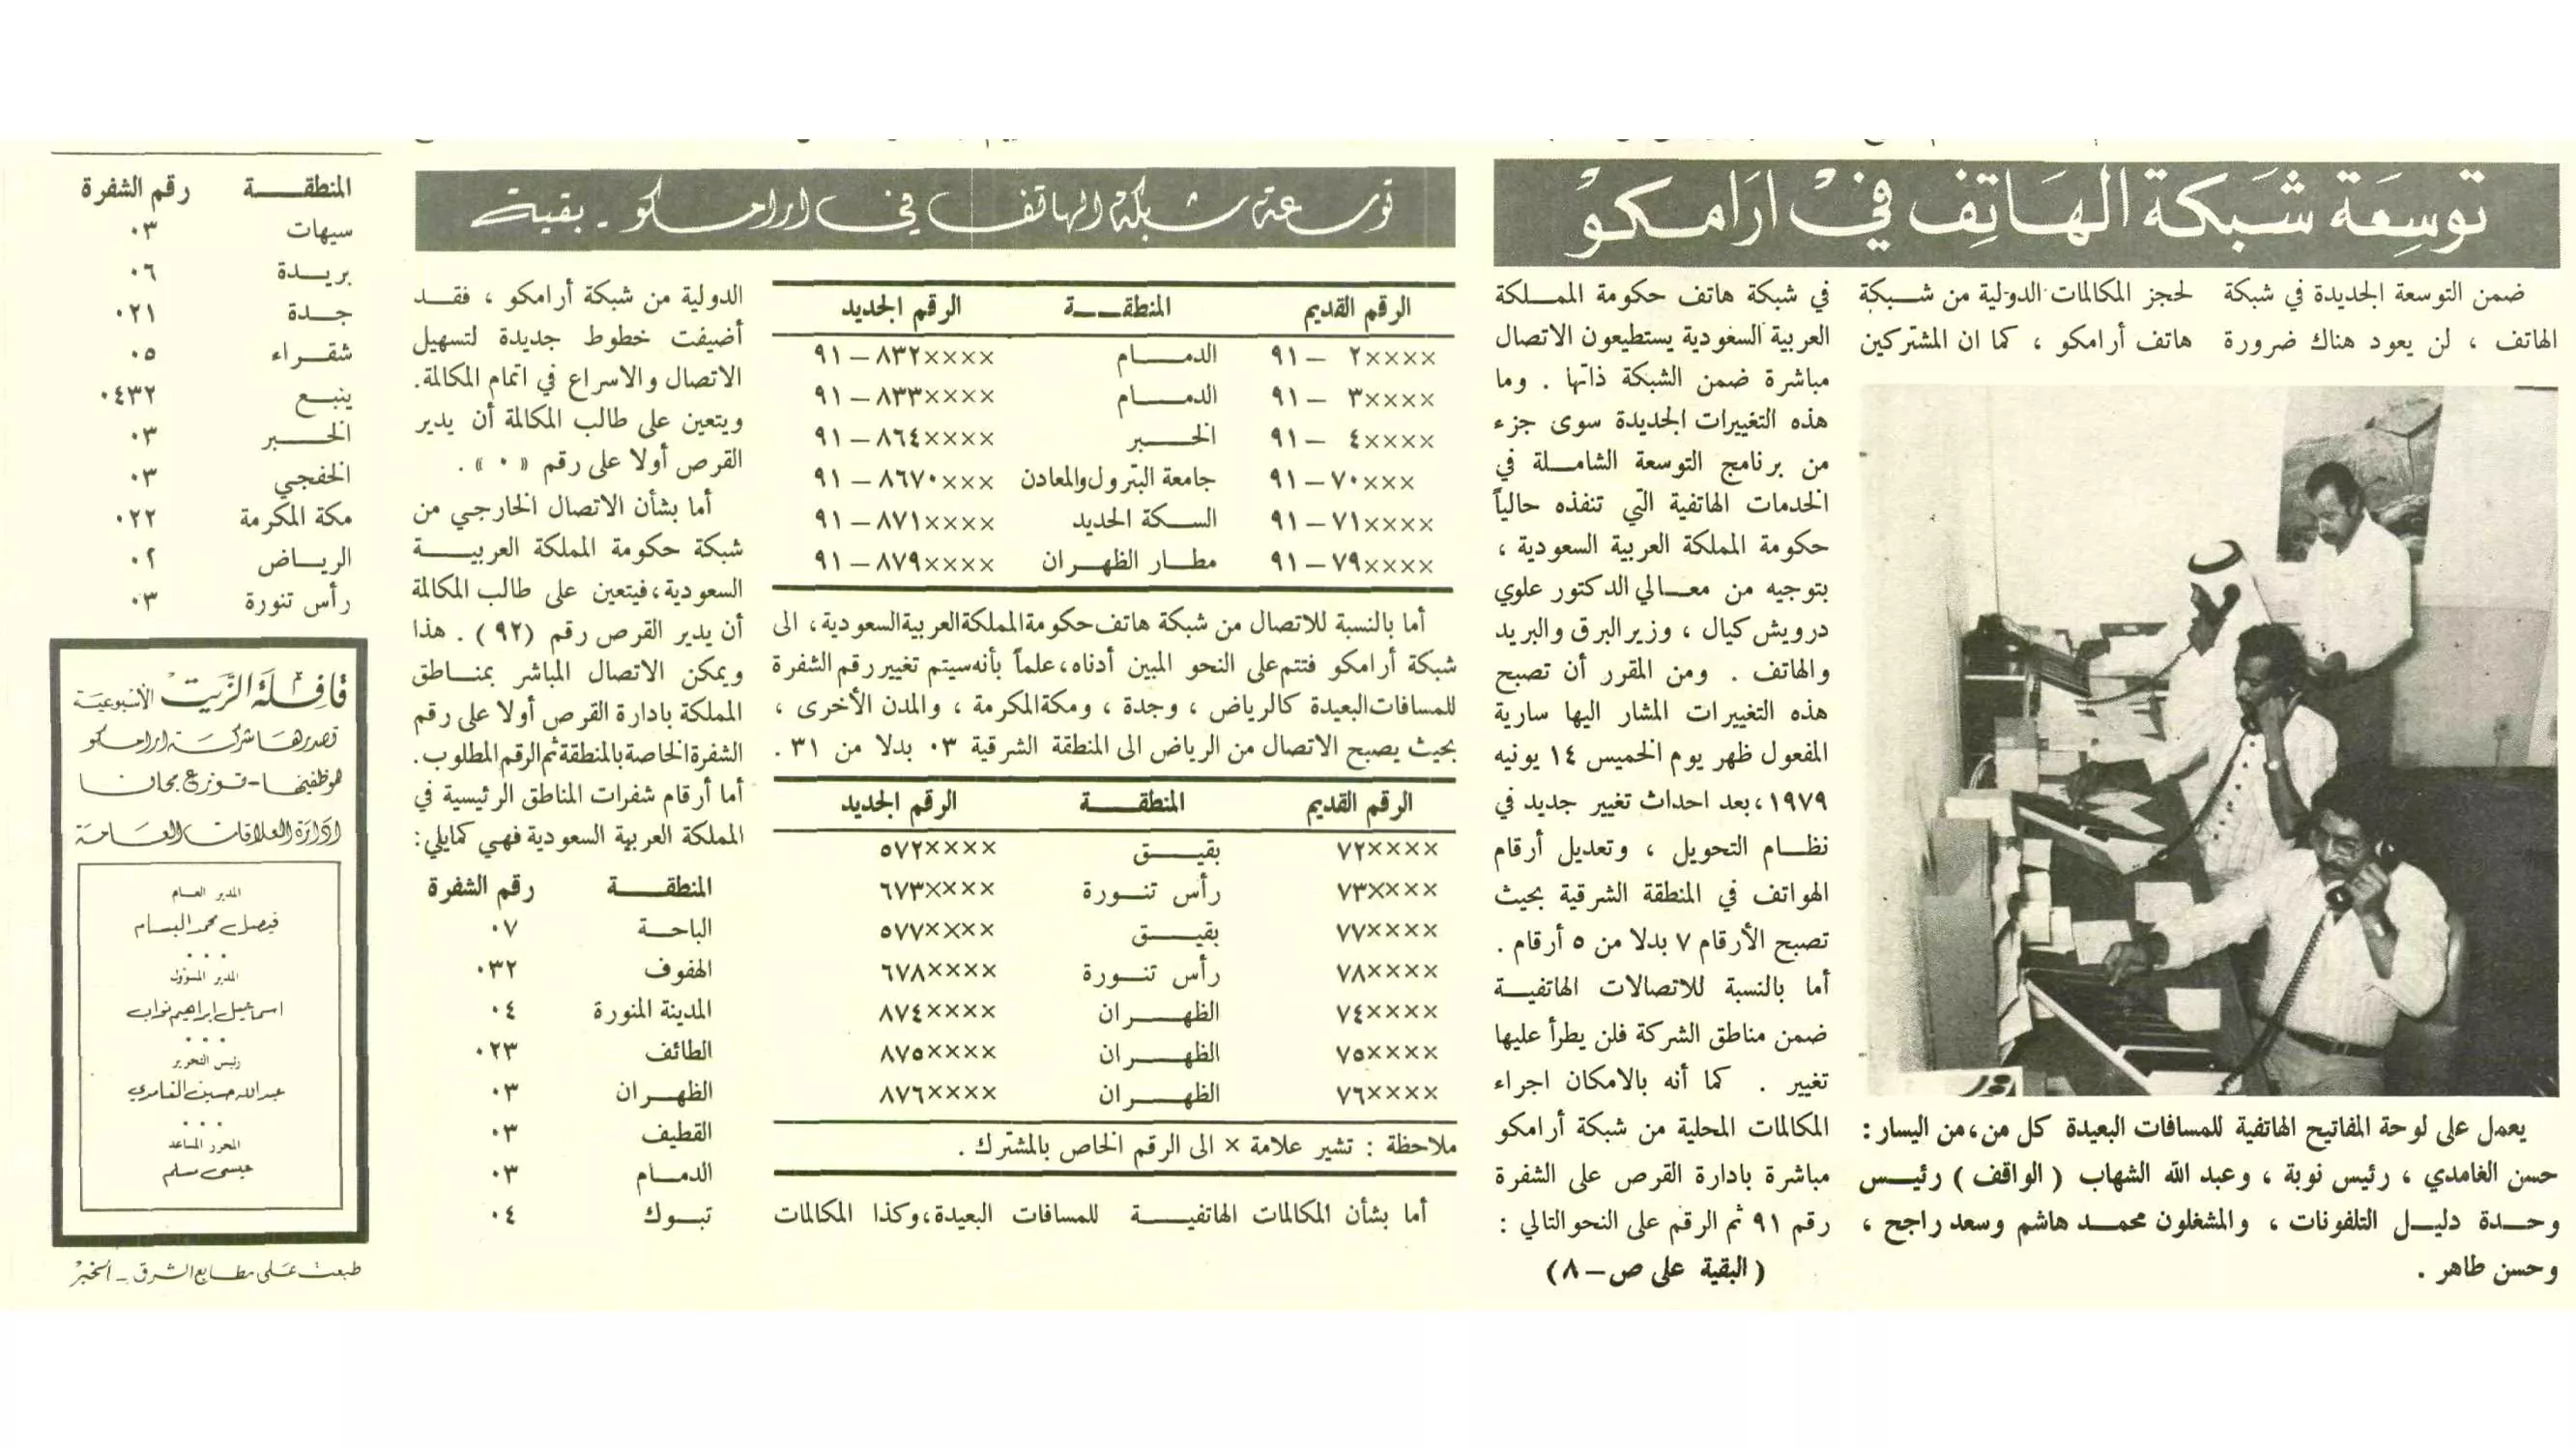 توسعة شبكة الهاتف في أرامكو
ضمن التوسعة الجديدة في شبكة
الهاتف ، لن يعود هناك ضرورة
لحجز المكالمات الدولية من شبكة
هاتف أرامكو ، كما ان المشتركين
يعمل على لوحة المفاتيح الهاتفية للمسافات البعيدة كل من، من اليسار :
حسن الغامدي ، رئيس نوبة ، وعبد الله الشهاب ( الواقف ) رئيس
وحدة دليل التلفونات ، والمشغلون محمد هاشم وسعد راجح ،
وحسن طاهر .
في شبكة هاتف حكومة المملكة
العربية السعودية يستطيعون الاتصال
مباشرة ضمن الشبكة ذاتها . وما
هذه التغييرات الجديدة سوى جزء
من برنامج التوسعة الشاملة في
الخدمات الهاتفية التي تنفذه حالياً
حكومة المملكة العربية السعودية ،
بتوجيه من معالي الدكتور علوي
درويش كيال ، وزير البرق والبريد
والهاتف . ومن المقرر أن تصبح
هذه التغييرات المشار اليها سارية
المفعول ظهر يوم الخميس ١٤ يونيه
١٩٧٩، بعد احداث تغيير جديد في
نظام التحويل ، وتعديل أرقام
الهواتف في المنطقة الشرقية بحيث
تصبح الأرقام ٧ بدلا من ٥ أرقام .
أما بالنسبة للاتصالات الهاتفية
ضمن مناطق الشركة فلن يطرأ عليها
تغيير . كما أنه بالامكان اجراء
المكالمات المحلية من شبكة أرامكو
مباشرة بادارة القرص على الشفرة
رقم ٩١ ثم الرقم على النحو التالي :
( البقية على ص–٨)
توسعة شبكة الهاتف في ارامكو - بقية
الرقم القديم المنطقة الرقم الجديد
٩١ – ٢×××× الدمام ٩١ – ٨٣٢××××
٩١ – ٣×××× الدمام ٩١ – ٨٣٣××××
٩١ – ٤×××× الخبر ٩١ – ٨٦٤××××
٩١ – ٧٠××× جامعة البترول والمعادن ٩١ – ٨٦٧٠×××
٩١ – ٧١×××× السكة الحديد ٩١ – ٨٧١××××
٩١ – ٧٩×××× مطار الظهران ٩١ – ٨٧٩××××
أما بالنسبة للاتصال من شبكة هاتف حكومة المملكة العربية السعودية، الى
شبكة أرامكو فتتم على النحو المبين أدناه، علماً بأنه سيتم تغيير رقم الشفرة
للمسافات البعيدة كالرياض ، وجدة ، ومكة المكرمة ، والمدن الأخرى ،
بحيث يصبح الاتصال من الرياض الى المنطقة الشرقية ٠٣ بدلا من ٣١ .
الرقم القديم المنطقة الرقم الجديد
٧٢×××× بقيق ٥٧٢××××
٧٣×××× رأس تنورة ٦٧٣××××
٧٧×××× بقيق ٥٧٧××××
٧٨×××× رأس تنورة ٦٧٨××××
٧٤×××× الظهران ٨٧٤××××
٧٥×××× الظهران ٨٧٥××××
٧٦×××× الظهران ٨٧٦××××
ملاحظة : تشير علامة × الى الرقم الخاص بالمشترك .
أما بشأن المكالمات الهاتفية للمسافات البعيدة، وكذا المكالمات
الدولية من شبكة أرامكو ، فقد
أضيفت خطوط جديدة لتسهيل
الاتصال والاسراع في اتمام المكالمة.
ويتعين على طالب المكالمة أن يدير
القرص أولا على رقم « ٠ » .
أما بشأن الاتصال الخارجي من
شبكة حكومة المملكة العربية
السعودية، فيتعين على طالب المكالمة
أن يدير القرص رقم (٩٢) . هذا
ويمكن الاتصال المباشر بمناطق
المملكة بادارة القرص أولا على رقم
الشفرة الخاصة بالمنطقة ثم الرقم المطلوب.
أما أرقام شفرات المناطق الرئيسية في
المملكة العربية السعودية فهي كمايلي:
المنطقة رقم الشفرة
الباحة ٠٧
الهفوف ٠٣٢
المدينة المنورة ٠٤
الطائف ٠٢٣
الظهران ٠٣
القطيف ٠٣
الدمام ٠٣
تبوك ٠٤
المنطقة رقم الشفرة
سيهات ٠٣
بريدة ٠٦
جدة ٠٢١
شقراء ٠٥
ينبع ٠٤٣٢
الخبر ٠٣
الخفجي ٠٣
مكة المكرمة ٠٢٢
الرياض ٠٢
رأس تنورة ٠٣
قافلة الزيت الأسبوعية
تصدرها شركة ارامكو
لموظفيها - توزع مجانا
ادارة العلاقات العامة
المدير العام
فيصل محمد البسام
المدير المسؤول
اسماعيل ابراهيم نواب
رئيس التحرير
عبدالله حسين الغامدي
المحرر المساعد
عيسى مسلم
طبعت على مطابع الشرق - الخبر